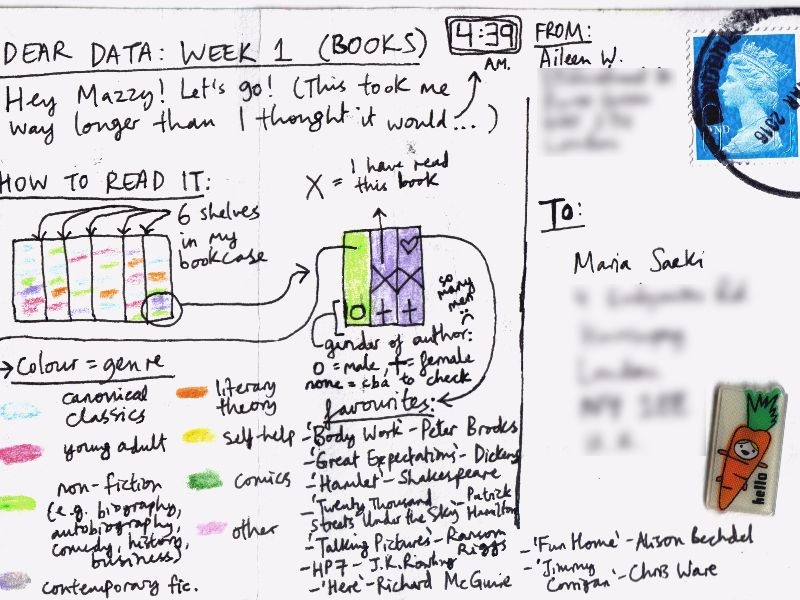 DEAR DATA: WEEK 1 (BOOKS)
4:39
A.M.
Hey Mazzy! Let's go! (This took me
way longer than I thought it would...)
HOW TO READ IT:
6 shelves
in my
bookcase
X = I have read
this book
so
many
men
gender of author:
O = male, + = female
none = cba to check
→ Colour = genre
canonical
classics
young adult
non-fiction
(e.g. biography,
autobiography,
comedy, history,
business)
contemporary fic.
literary
theory
self-help
comics
other
favourites:
- 'Body Work' - Peter Brooks
- 'Great Expectations' - Dickens
- 'Hamlet' - Shakespeare
- 'Twenty Thousand
Streets Under the Sky' - Patrick
Hamilton
- 'Talking Pictures' - Ransom
Riggs
- HP7 - J.K. Rowling
- 'Here' - Richard McGuire
- 'Fun Home' - Alison Bechdel
- 'Jimmy
Corrigan' - Chris Ware
FROM:
Aileen W.
TO:
Maria Saeki
2016
hello